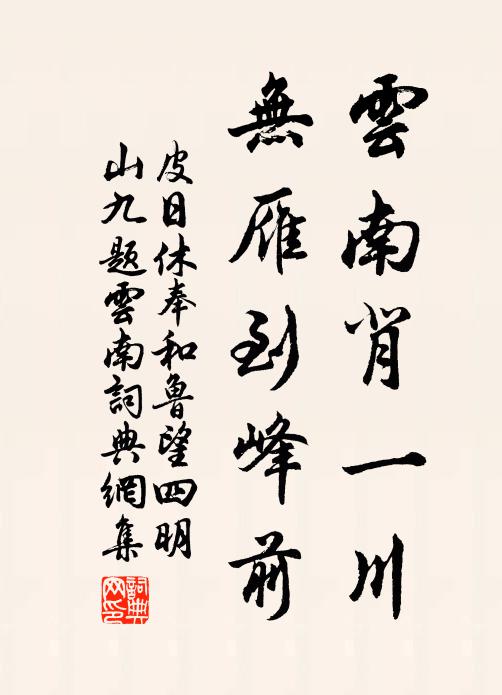 雲南背一川
無雁到峰前
皮日休奉和魯望四明
山九題雲南詞典網集
詞典网印